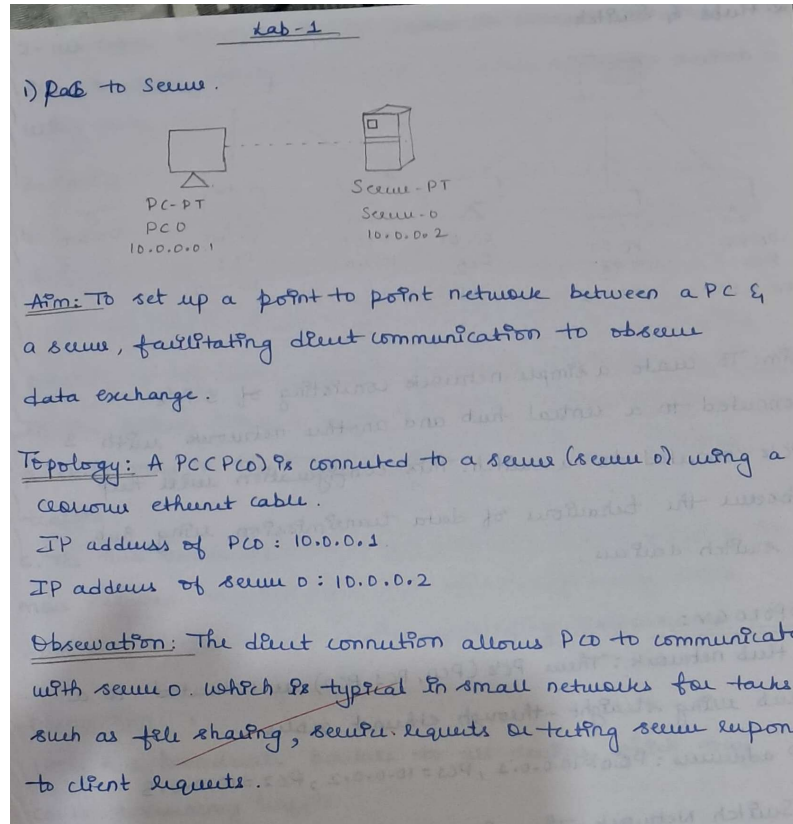 Lab-1
1) PC to Server.
PC-PT
PC0
10.0.0.0.1
Server-PT
Server-0
10.0.0.2
Aim: To set up a point to point network between a PC &
a server, facilitating direct communication to observe
data exchange.
Topology: A PC(PC0) is connected to a server (server 0) using a
crossover ethernet cable.
IP address of PC0: 10.0.0.1
IP address of server 0: 10.0.0.2
Observation: The direct connection allows PC0 to communicate
with server 0. which is typical in small networks for tasks
such as file sharing, service requests or testing server respon
to client requests.